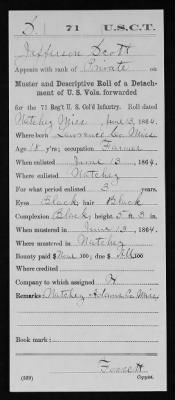 S | 71 | U.S.C.T.
Jefferson Scott
Appears with rank of Private on
Muster and Descriptive Roll of a Detach-
ment of U. S. Vols. forwarded
for the 71 Reg't U. S. Col'd Infantry. Roll dated
Natchez Miss June 13, 1864.
Where born Lawrence Co. Miss
Age 18 y'rs; occupation Farmer
When enlisted June 13, 1864.
Where enlisted Natchez
For what period enlisted 3 years.
Eyes Black; hair Black
Complexion Black; height 5 ft. 3 in.
When mustered in June 13, 1864.
Where mustered in Natchez
Bounty paid $ None 100; due $ 100
Where credited
Company to which assigned
Remarks: Natchez Adams Co. Miss.
Book mark:
(339) Copyist.